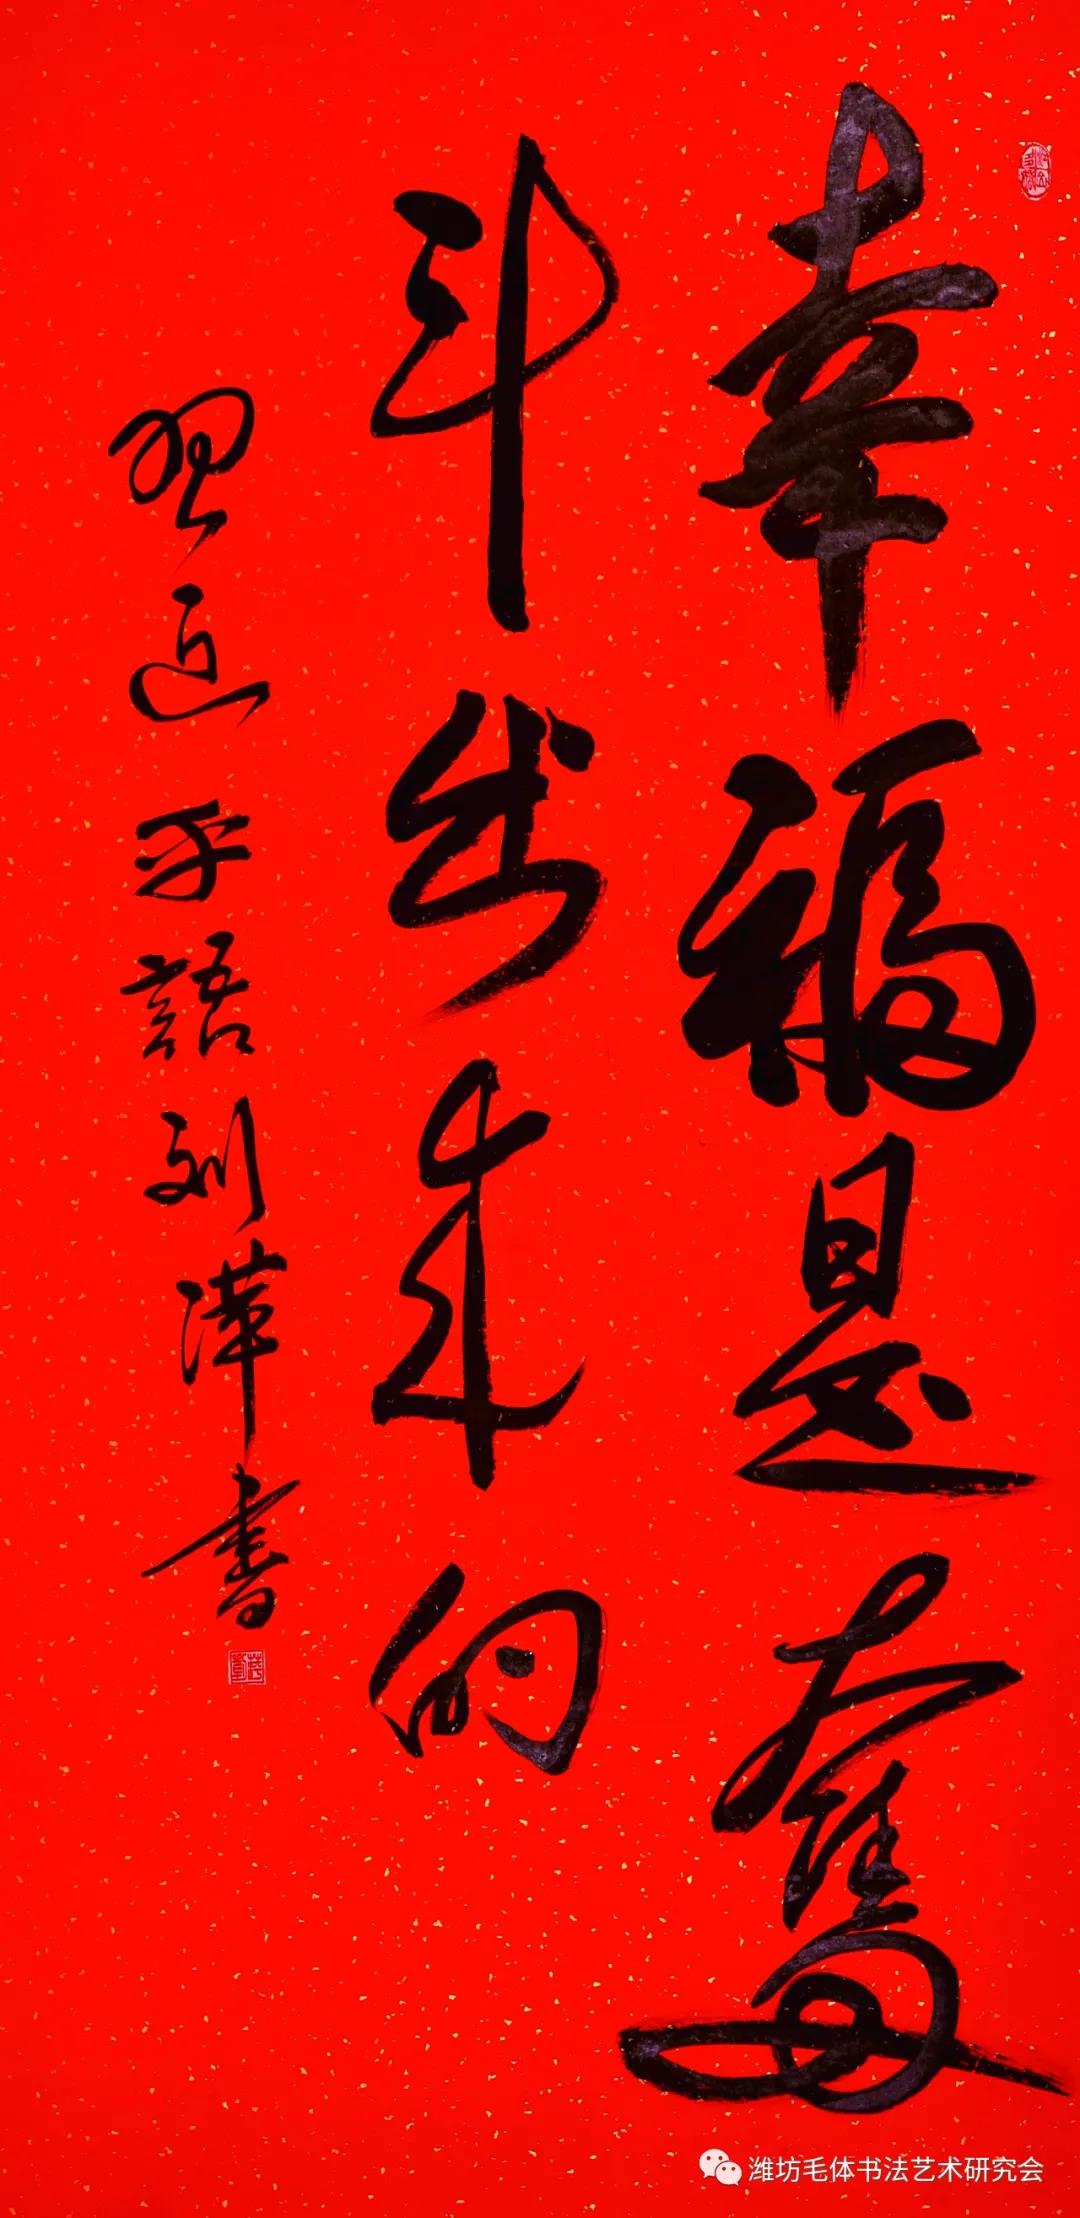 幸福是奋
斗出来的
习近平語刘萍書
潍坊毛体书法艺术研究会